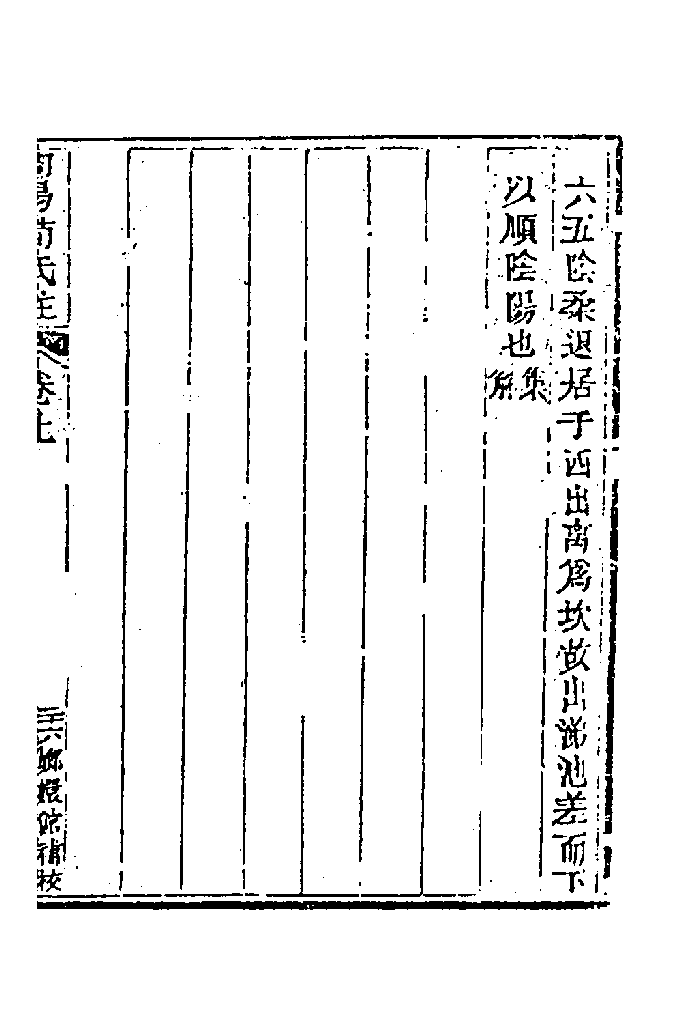 六五陰柔退居于西出离爲坎故出涕池差而下
以順陰陽也集解
周易荀氏注 卷上
嫏嬛館補校